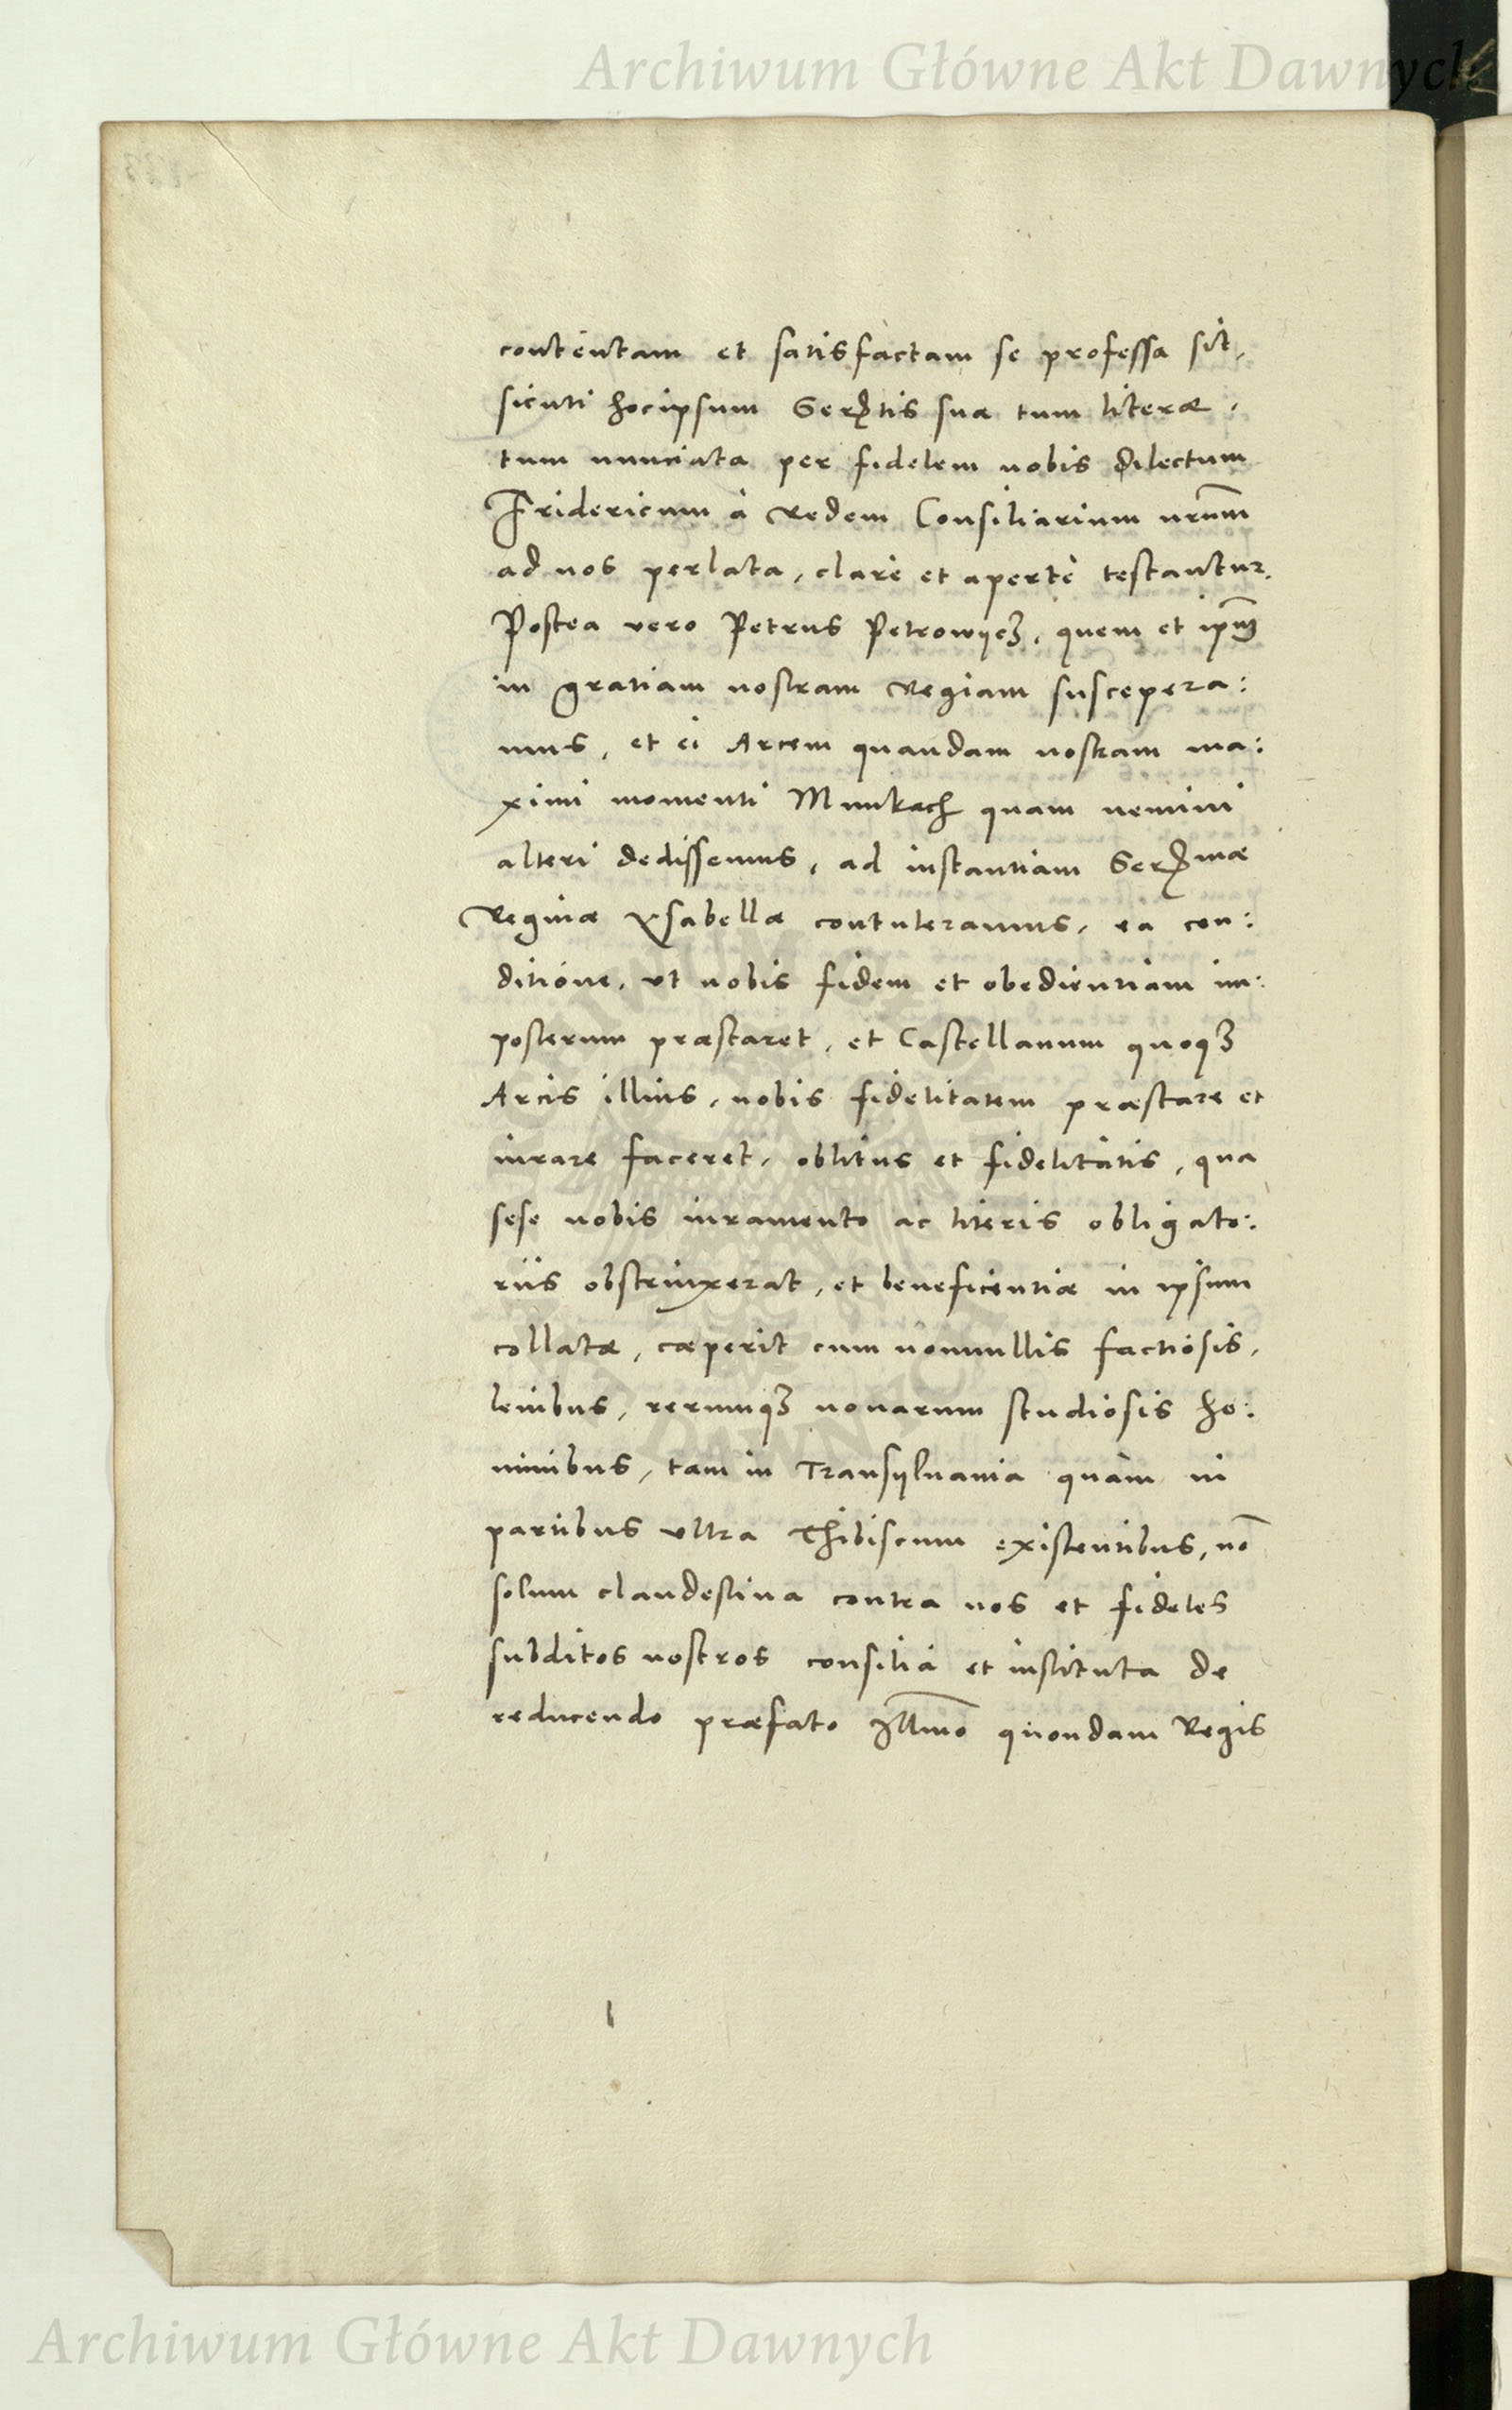 Archiwum Główne Akt Dawnych
contentam et satisfactam se professa sit,
sicuti hocipsum Sertis suæ tum literæ,
tum nunciata per fidelem nobis dilectum
Fridericum à Redern Consiliarium nrum
ad nos perlata, clarè et apertè testantur.
Postea vero Petrus Petrowycz, quem et ipm
in gratiam nostram Regiam suscepera:
mus, et ei Arcem quandam nostram ma:
ximi momenti Munkach quam nemini
alteri dedissemus, ad instantiam Sermæ
Reginæ Ysabellæ contuleramus, ea con:
ditione, ut nobis fidem et obedientiam im:
posterum præstaret, et Castellanum quoq3
Arcis illius, nobis fidelitatem præstare et
iurare faceret, oblitus et fidelitatis, qua
sese nobis iuramento ac literis obligato:
riis obstrinxerat, et beneficentiæ in ipsum
collatæ, cæperit cum nonnullis factiosis,
leuibus, rerumq3 nouarum studiosis ho:
minibus, tam in Transyluania quàm in
partibus ultra Thibiscum existentibus, nō
solum clandestina contra nos et fideles
subditos nostros consilia et instituta de
reducendo præfato Illmo quondam Regis
Archiwum Główne Akt Dawnych